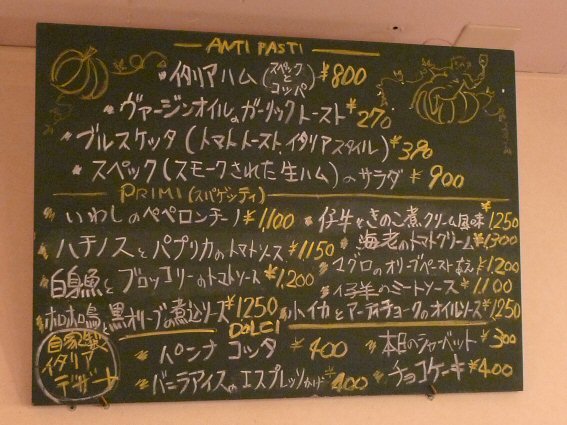 ANTI PASTI
イタリアハム(スペックとコッパ) ¥800
ヴァージンオイルのガーリックトースト ¥270
ブルスケッタ(トマトトースト、イタリアスタイル) ¥390
スペック(スモークされた生ハム)のサラダ ¥900
PRIMI(スパゲッティ)
いわしのペペロンチーノ ¥1,100
仔牛ときのこ煮クリーム風味 ¥1,250
ハチノスとパプリカのトマトソース ¥1150
海老のトマトクリーム ¥1300
白身魚とブロッコリーのトマトソース ¥1,200
マグロのオリーブペースト和え ¥1,200
仔羊のミートソース ¥1100
ホロホロ鳥と黒オリーブの煮込ソース ¥1250
小イカとアーティチョークのオイルソース ¥1,250
DOLCI
自家製
イタリア
デザート
パンナコッタ ¥400
本日のシャーベット ¥300
バニラアイスのエスプレッソかけ ¥400
チョコケーキ ¥400